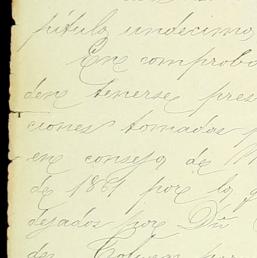 pítulo undécimo
En comproba
den tenerse pres
ciones tomadas p
en consejo de M
de 1861 por lo q
dejados por Dn
de